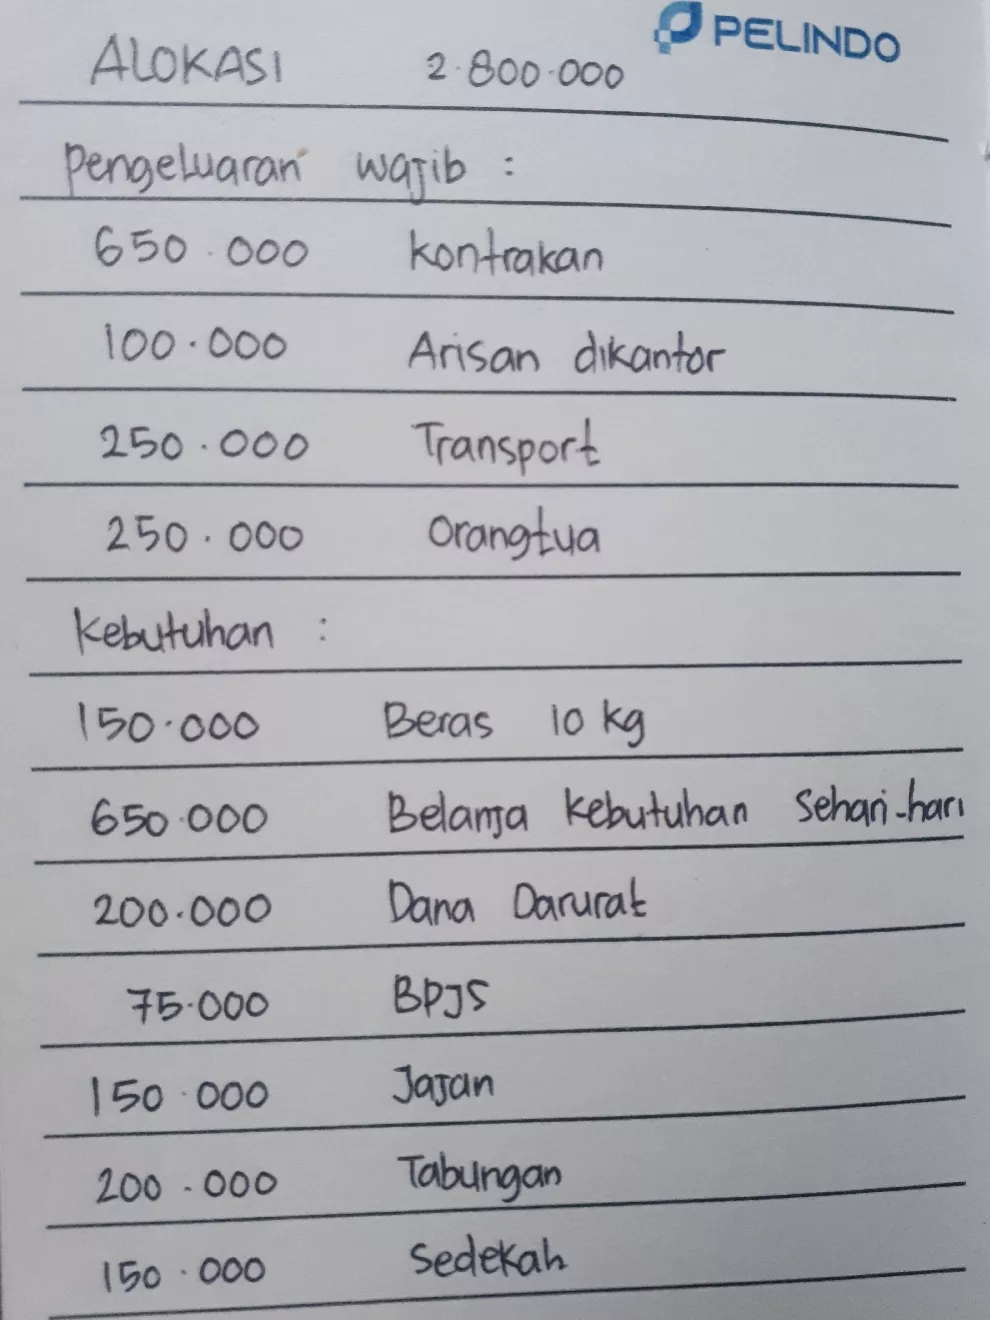 PELINDO
ALOKASI 2.800.000
Pengeluaran wajib :
650.000 kontrakan
100.000 Arisan dikantor
250.000 Transport
250.000 Orangtua
Kebutuhan :
150.000 Beras 10 kg
650.000 Belanja kebutuhan sehari-hari
200.000 Dana Darurat
75.000 BPJS
150.000 Jajan
200.000 Tabungan
150.000 Sedekah